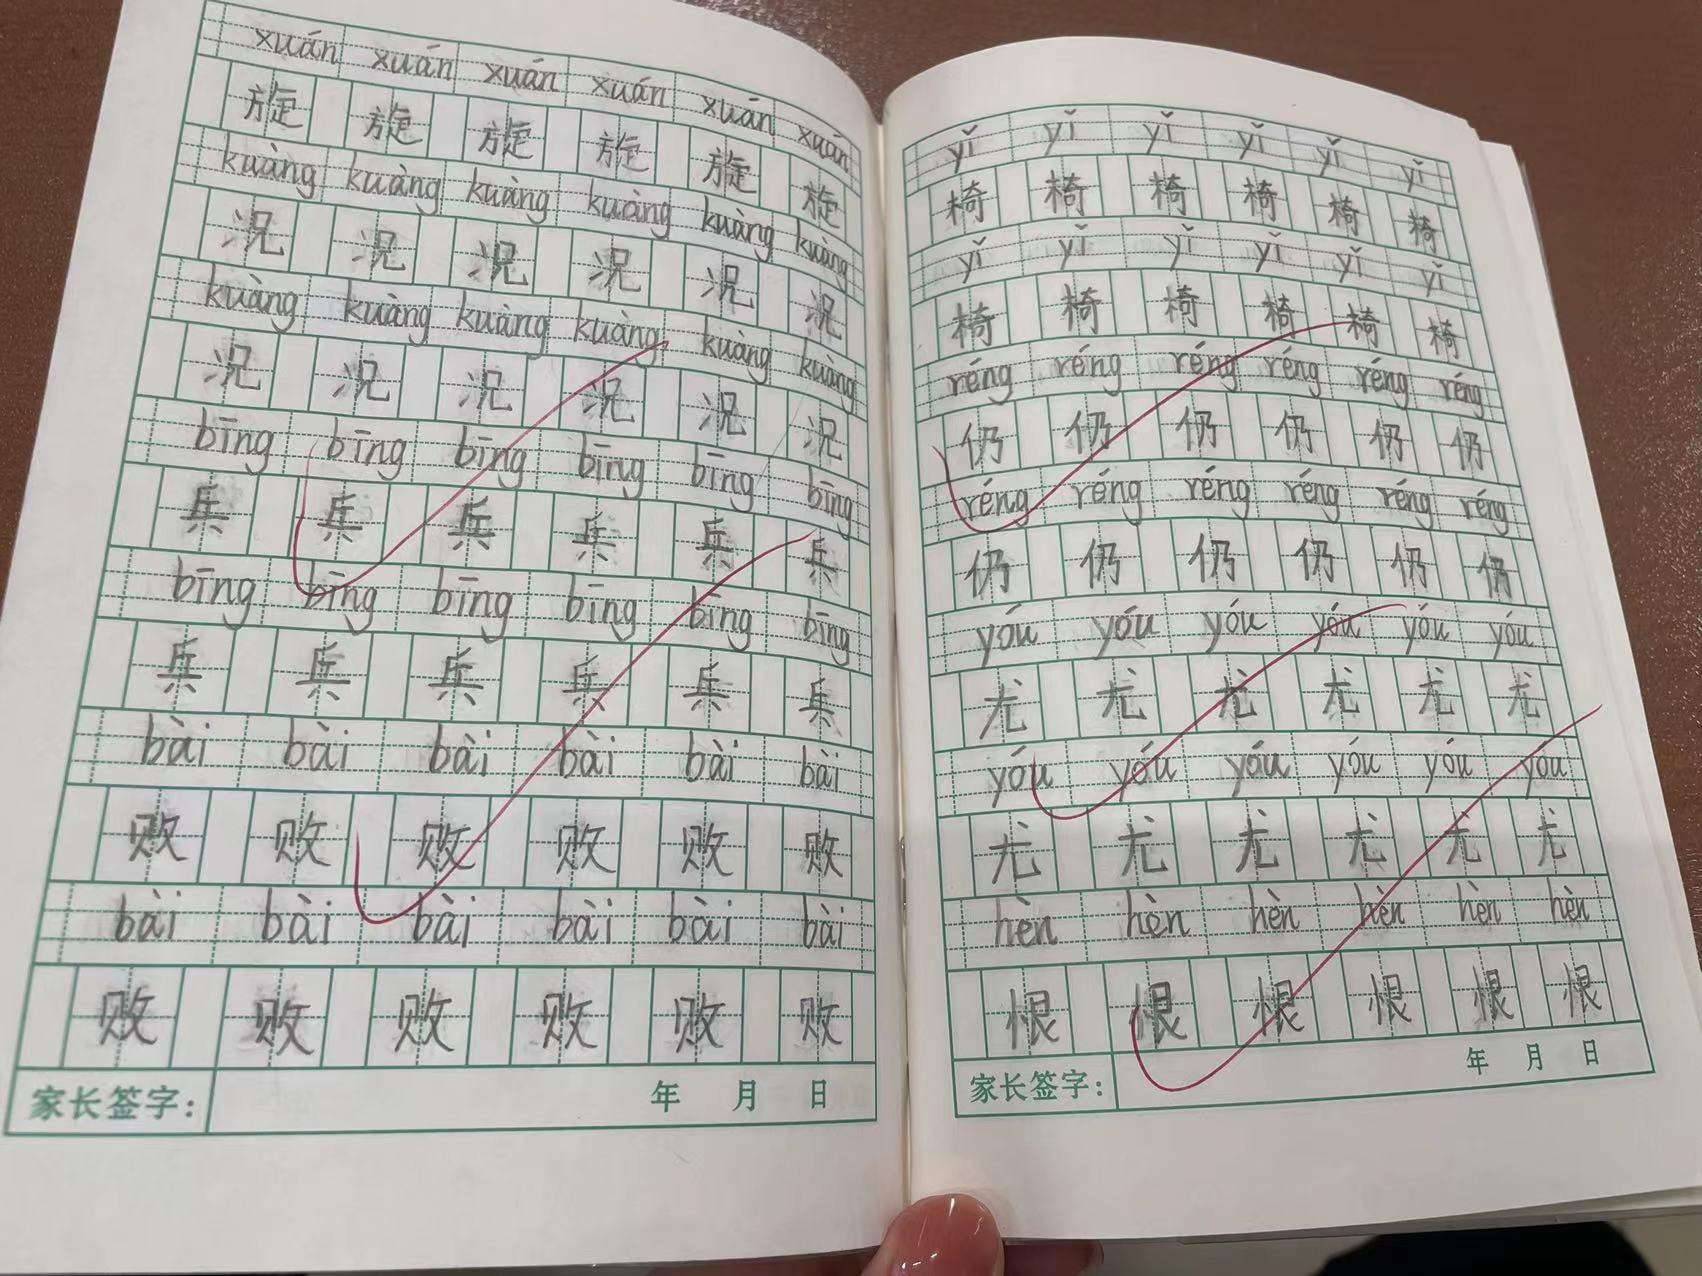 xuán xuán xuán xuán xuán xuán
旋 旋 旋 旋 旋 旋
kuàng kuàng kuàng kuàng kuàng kuàng
况 况 况 况 况 况
kuàng kuàng kuàng kuàng kuàng kuàng
况 况 况 况 况 况
bīng bīng bīng bīng bīng bīng
兵 兵 兵 兵 兵 兵
bīng bīng bīng bīng bīng bīng
兵 兵 兵 兵 兵 兵
bài bài bài bài bài bài
败 败 败 败 败 败
bài bài bài bài bài bài
败 败 败 败 败 败
家长签字: 年 月 日
yǐ yǐ yǐ yǐ yǐ yǐ
椅 椅 椅 椅 椅 椅
yǐ yǐ yǐ yǐ yǐ yǐ
椅 椅 椅 椅 椅 椅
réng réng réng réng réng réng
仍 仍 仍 仍 仍 仍
réng réng réng réng réng réng
仍 仍 仍 仍 仍 仍
yóu yóu yóu yóu yóu yóu
尤 尤 尤 尤 尤 尤
yóu yóu yóu yóu yóu yóu
尤 尤 尤 尤 尤 尤
hèn hèn hèn hèn hèn hèn
恨 恨 恨 恨 恨 恨
家长签字: 年 月 日